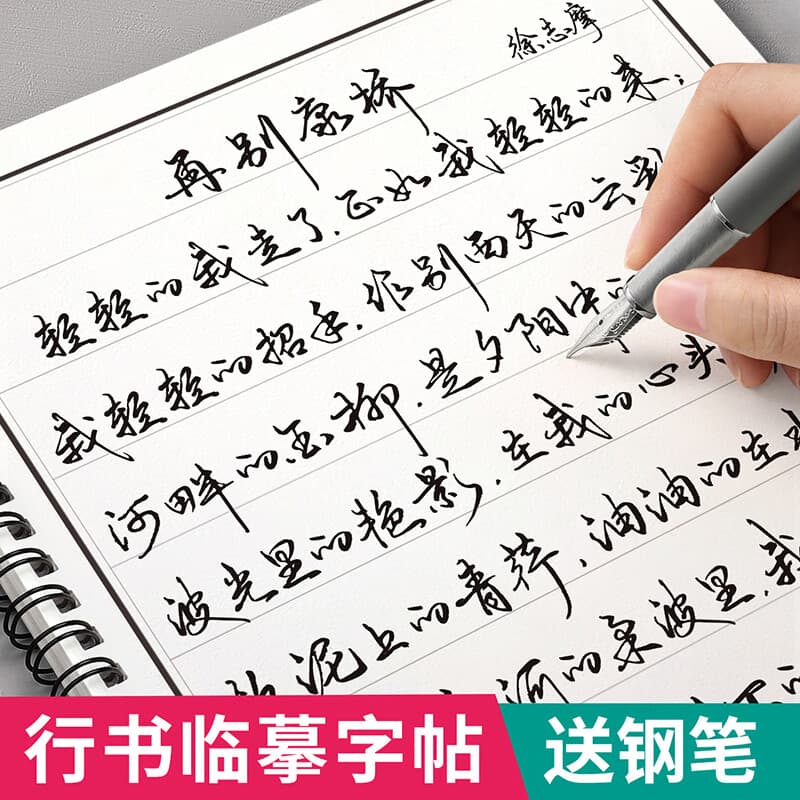 徐志摩
再别康桥
轻轻的我走了.正如我轻轻的来;
我轻轻的招手.作别西天的云
河畔的金柳.是夕阳中
波光里的艳影.在我的心头
泥上的青荇,油油的在
河的柔波里,我
行书临摹字帖
送钢笔